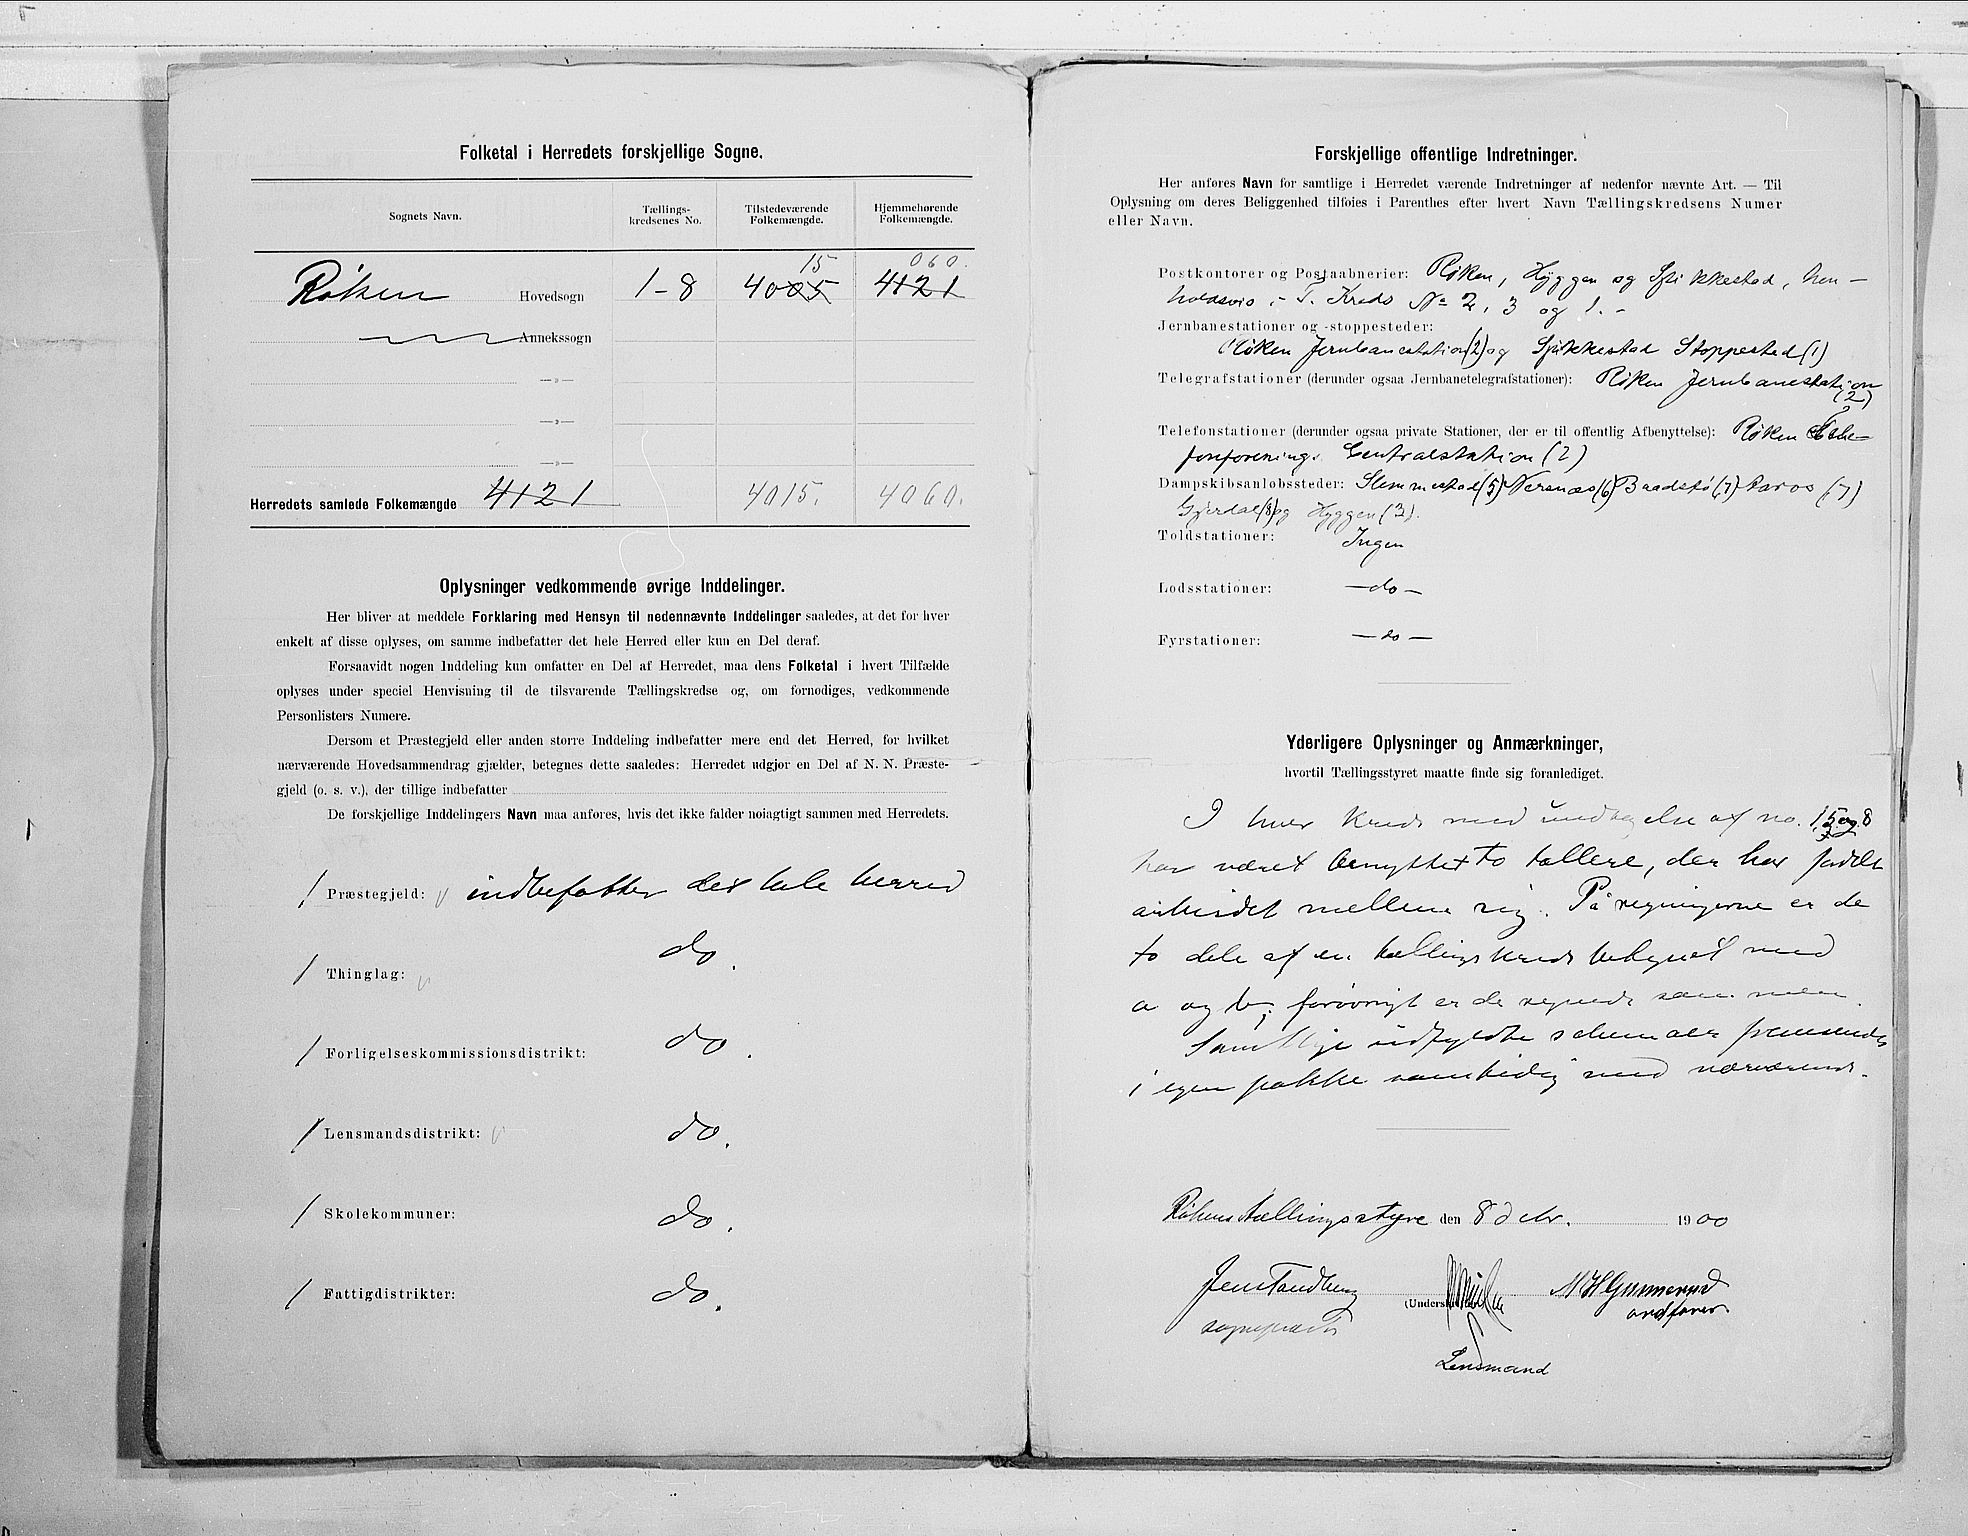 Folketal i Herredets forskjellige Sogne.
Sognets Navn. Tællings-kredsenes No. Tilstedeværende Folkemængde. Hjemmehørende Folkemængde.
15 060.
Røken Hovedsogn 1-8 4005 4121
Annekssogn
—»—
—»—
—»—
Herredets samlede Folkemængde 4121 4015. 4060.
Oplysninger vedkommende øvrige Inddelinger.
Her bliver at meddele Forklaring med Hensyn til nedennævnte Inddelinger saaledes, at det for hver
enkelt af disse oplyses, om samme indbefatter det hele Herred eller kun en Del deraf.
Forsaavidt nogen Inddeling kun omfatter en Del af Herredet, maa dens Folketal i hvert Tilfælde
oplyses under speciel Henvisning til de tilsvarende Tællingskredse og, om fornødiges, vedkommende
Personlisters Numere.
Dersom et Præstegjeld eller anden større Inddeling indbefatter mere end det Herred, for hvilket
nærværende Hovedsammendrag gjælder, betegnes dette saaledes: Herredet udgjør en Del af N. N. Præste-
gjeld (o. s. v.), der tillige indbefatter
De forskjellige Inddelingers Navn maa anføres, hvis det ikke falder nøiagtigt sammen med Herredets.
/ Præstegjeld: indbefatter det hele herred
/ Thinglag: do.
/ Forligelseskommissionsdistrikt: do.
/ Lensmandsdistrikt: do.
/ Skolekommuner: do.
/ Fattigdistrikter: do.
Forskjellige offentlige Indretninger.
Her anføres Navn for samtlige i Herredet værende Indretninger af nedenfor nævnte Art. — Til
Oplysning om deres Beliggenhed tilføies i Parenthes efter hvert Navn Tællingskredsens Numer
eller Navn.
Postkontorer og Postaabnerier: Røken, Hyggen og Spikkestad, hen-
holdsvis i T. Kreds No 2, 3 og 1. -
Jernbanestationer og -stoppesteder:
Røken Jernbanestation (2) og Spikkestad Stoppested (1)
Telegrafstationer (derunder ogsaa Jernbanetelegrafstationer): Røken Jernbanestation
(2)
Telefonstationer (derunder ogsaa private Stationer, der er til offentlig Afbenyttelse): Røken Tele-
fonforenings Centralstation (2)
Dampskibsanløbssteder: Slemmestad (5) Nersnæs (6) Baadstø (7) (7)
Gjerdal (8) og Hyggen (3).
Toldstationer: Ingen
Lodsstationer: — do —
Fyrstationer: — do —
Yderligere Oplysninger og Anmærkninger,
hvortil Tællingsstyret maatte finde sig foranlediget.
I hver kreds med undtagelse af no. 1, 5 og 8
har været benyttet to tællere, der har fordelt
arbeidet mellem sig. På regningerne er de
to dele af en tællingskreds betegnet med
a og b; forøvrigt er de regnede sammen.
Samtlige udfyldte schemaer fremsendes
i egen pakke samtidig med nærværende.
Røkens tællingsstyre den 8 debr. 1900
Jens Tandberg M H Gunnerud
(Underskrift) ordfører
sogneprest
Lensmand